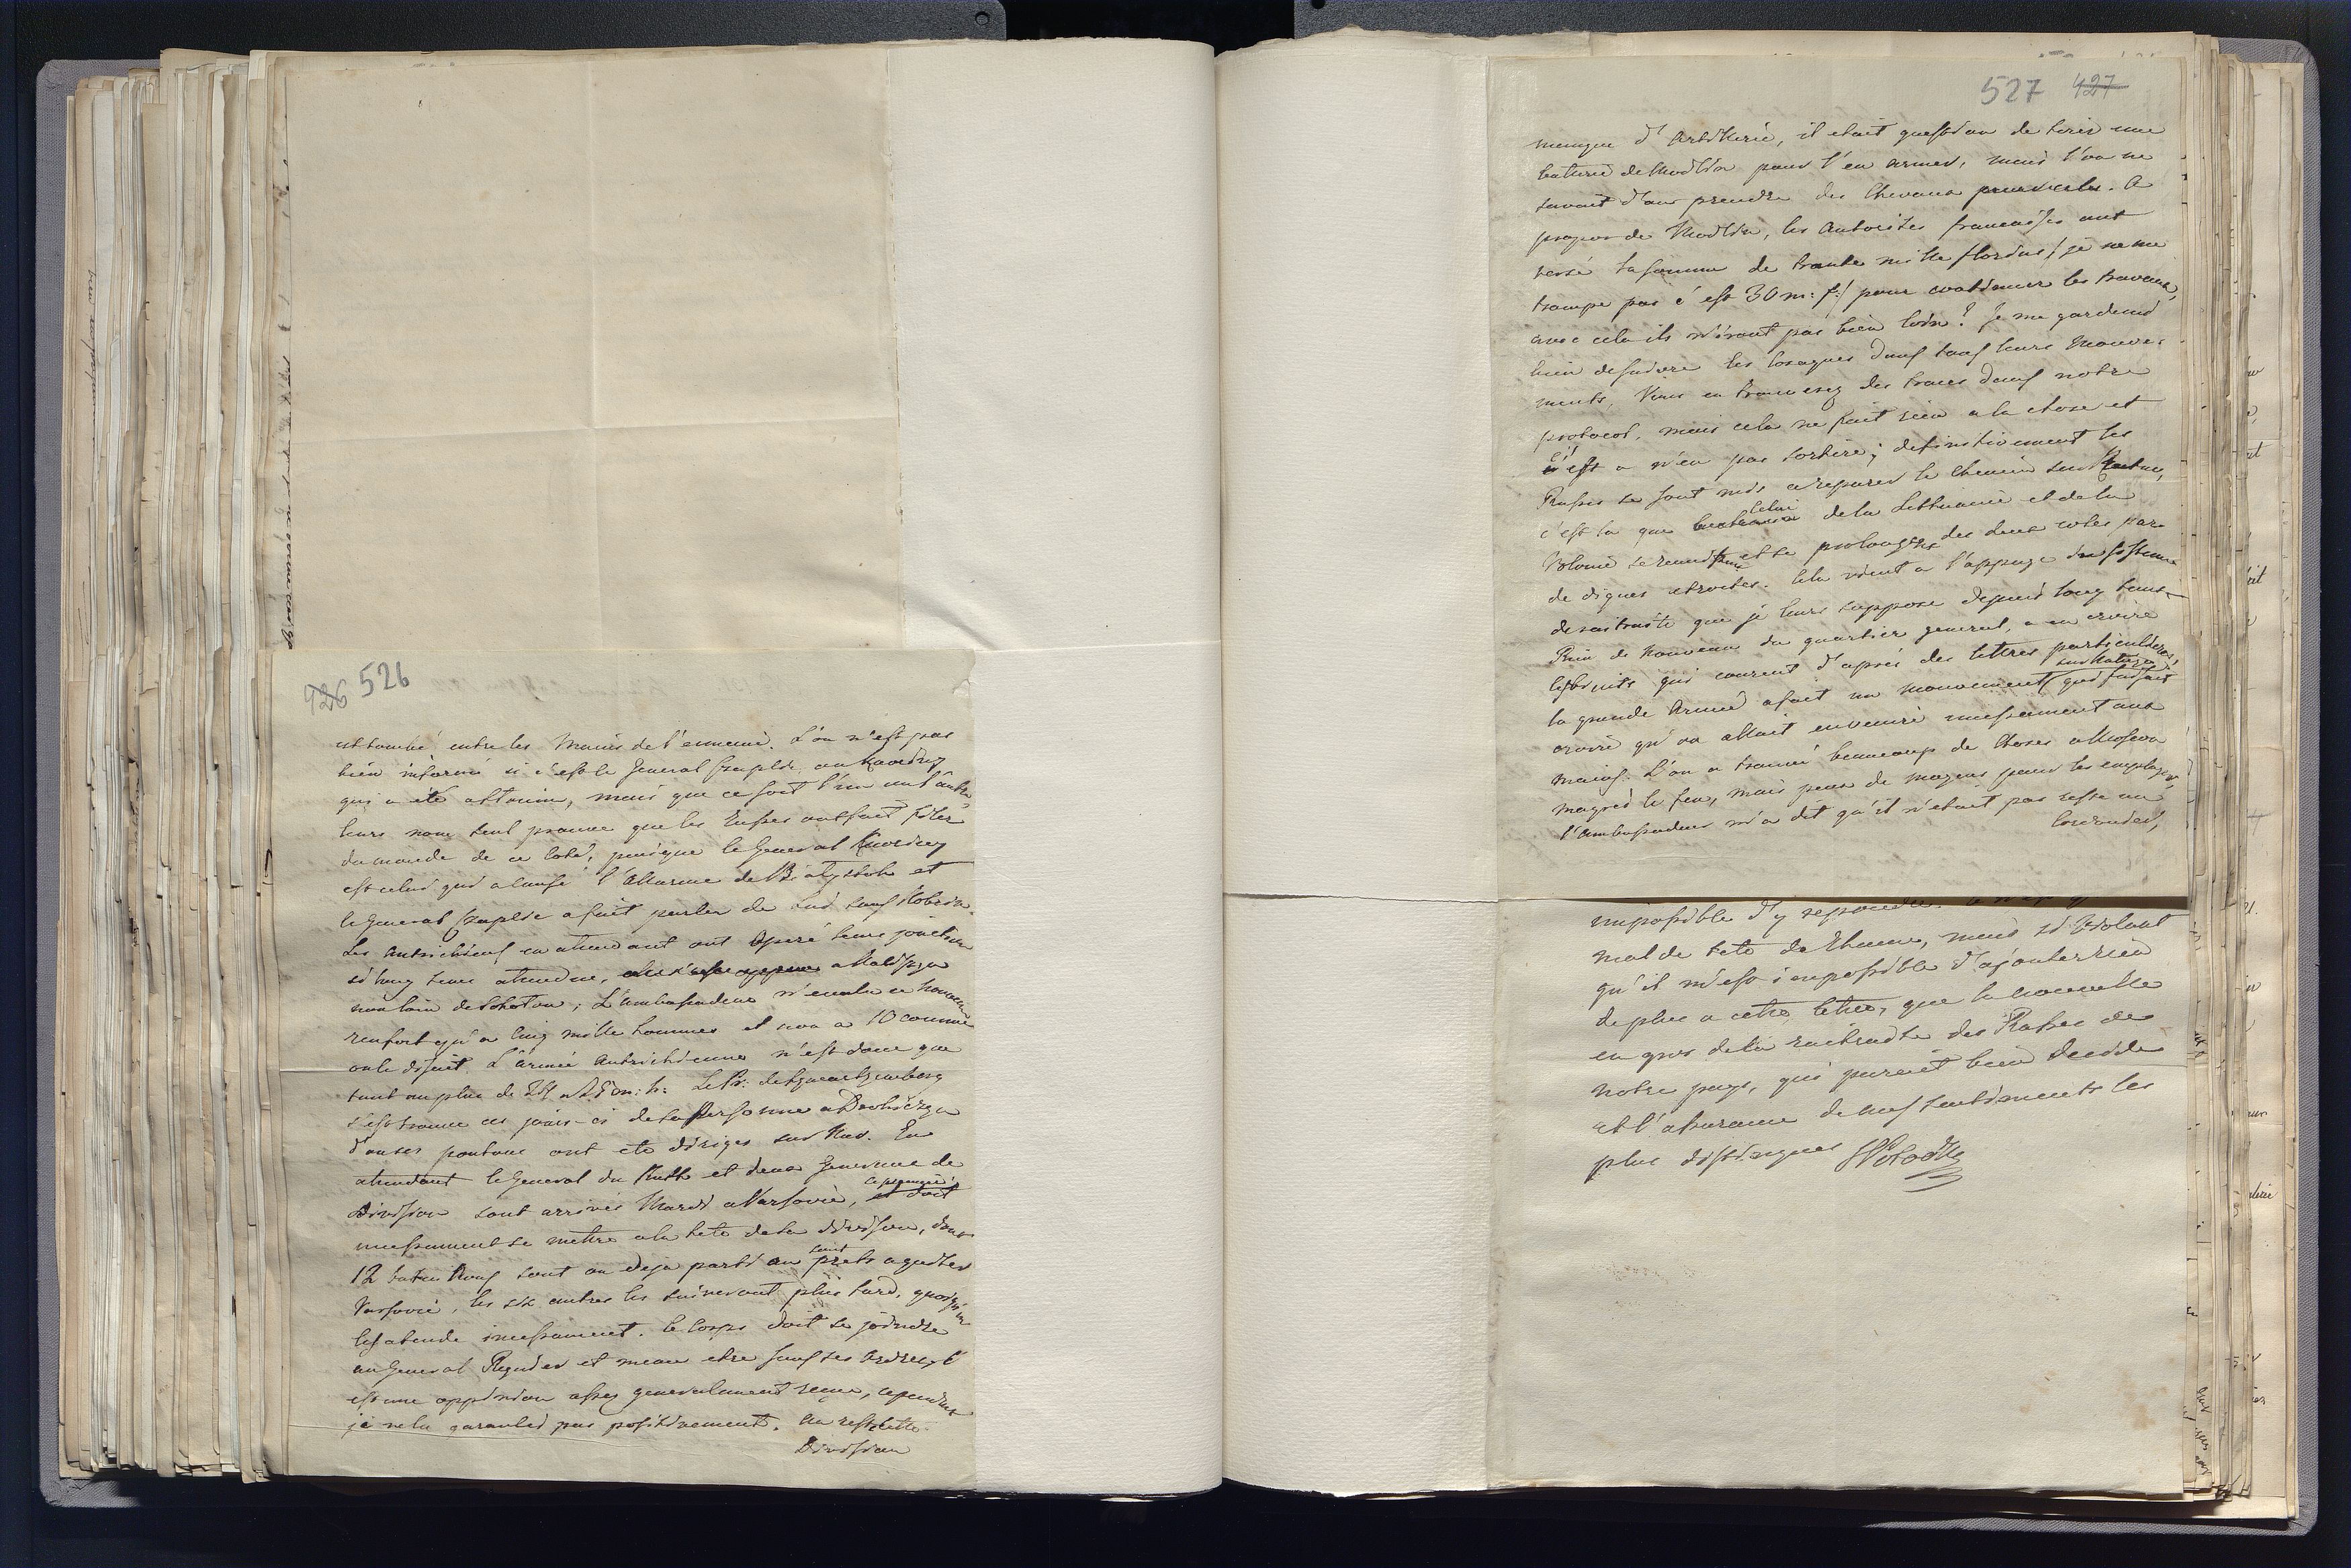 426 526
est tombé entre les Mains de l'ennemi. L'on n'est pas
bien informé si c'est le General Czaplic ou Knoring
qui a été à Slonim, mais que ce soit l'un ou l'autre
leurs nom seul prouve que les Russes ont fait filer
du monde de ce coté, puisque le General Knoring
est celui qui a causé l'allarme de Białystok et
le General Czaplic a fait parler de lui sous Kobrin.
Les Autrichiens en attendant ont operé leurs jonction
si long tems attendue, a Wołdsza
non loin de ; L'ambassadeur n'evalue ce nouveau
renfort qu'a cinq mille hommes et non a 10 comme
on le disait. L'armée Autrichienne n'est donc que
tout au plus de m: h: Le Pr: de Szwartzemberg
s'est trouvé ces jours-ci de sa Personne a Drohiczyn
d'ou ses pontons ont été dirigés sur Nur. En
attendant le General du Rutt et deux Generaux de
Division sont arrivés Mardi a Varsovie, et doit
le premier
incessament se mettre a la tete de la division, dont
12 bataillons sont ou deja parti ou sont prets a quitter
Varsovie, les six autres les suiveront plus tard, quoiqu'on
les attende incessament. Ce Corps doit se joindre
au General Reynier et meme etre sous ses Ordres, c'
est une oppinion assez generalement reçue, cependant
je ne la garantis pas positivement. Au reste cette
Division
527 427
manque d'Artillerie, il etait question de tirer une
batterie de Modlin pour l'en armer, mais l'on ne
savait d'ou prendre des Chevaux pour . A
propos de Modlin, les Autorités francaises ont
versé la somme de trente mille florins / je ne me
trompe pas c'est 30 m: f: / pour continuer les travaux,
avec cela ils n'iront pas bien loin! Je me garderai
bien de suivre les Cosaques dans tous leurs Mouve-
ments, Vous en trouverez des traces dans notre
protocol, mais cela ne fait rien a la chose et
c'est a n'en pas sortire; definitivement les
Russes se sont mis a reparer le Chemin sur ,
c'est la que celui de la Lithuanie et de la
Volonie se reunissent et se prolongent des deux cotés par
de digues etroites. Cela vient a l'appuye du sisteme
de raitraite que je leurs suppose depuis long tems.
Rien de nouveau du quartier general, a en croire
les bruits qui courent d'après des lettres particulieres,
la grande Armée a fait un mouvement sur Kaluga qui faisait
croire qu'on allait en venire incessament aux
mains. L'on a trouvé beaucoup de Choses a Moscou
magrès le feu, mais peu de moyens pour les employer,
l'Ambassadeur m'a dit qu'il n'etait pas resté un
Cordonier,
impossible d'y repondre.
mal de tete de Rhume, mais si violent
qu'il m'est impossible d'ajouter rien
de plus a cette lettre, que la nouvelle
en gros de la raitraite des Russes de
notre pays, qui parait bien decidée
et l'assurance de mes sentiments les
plus distingués